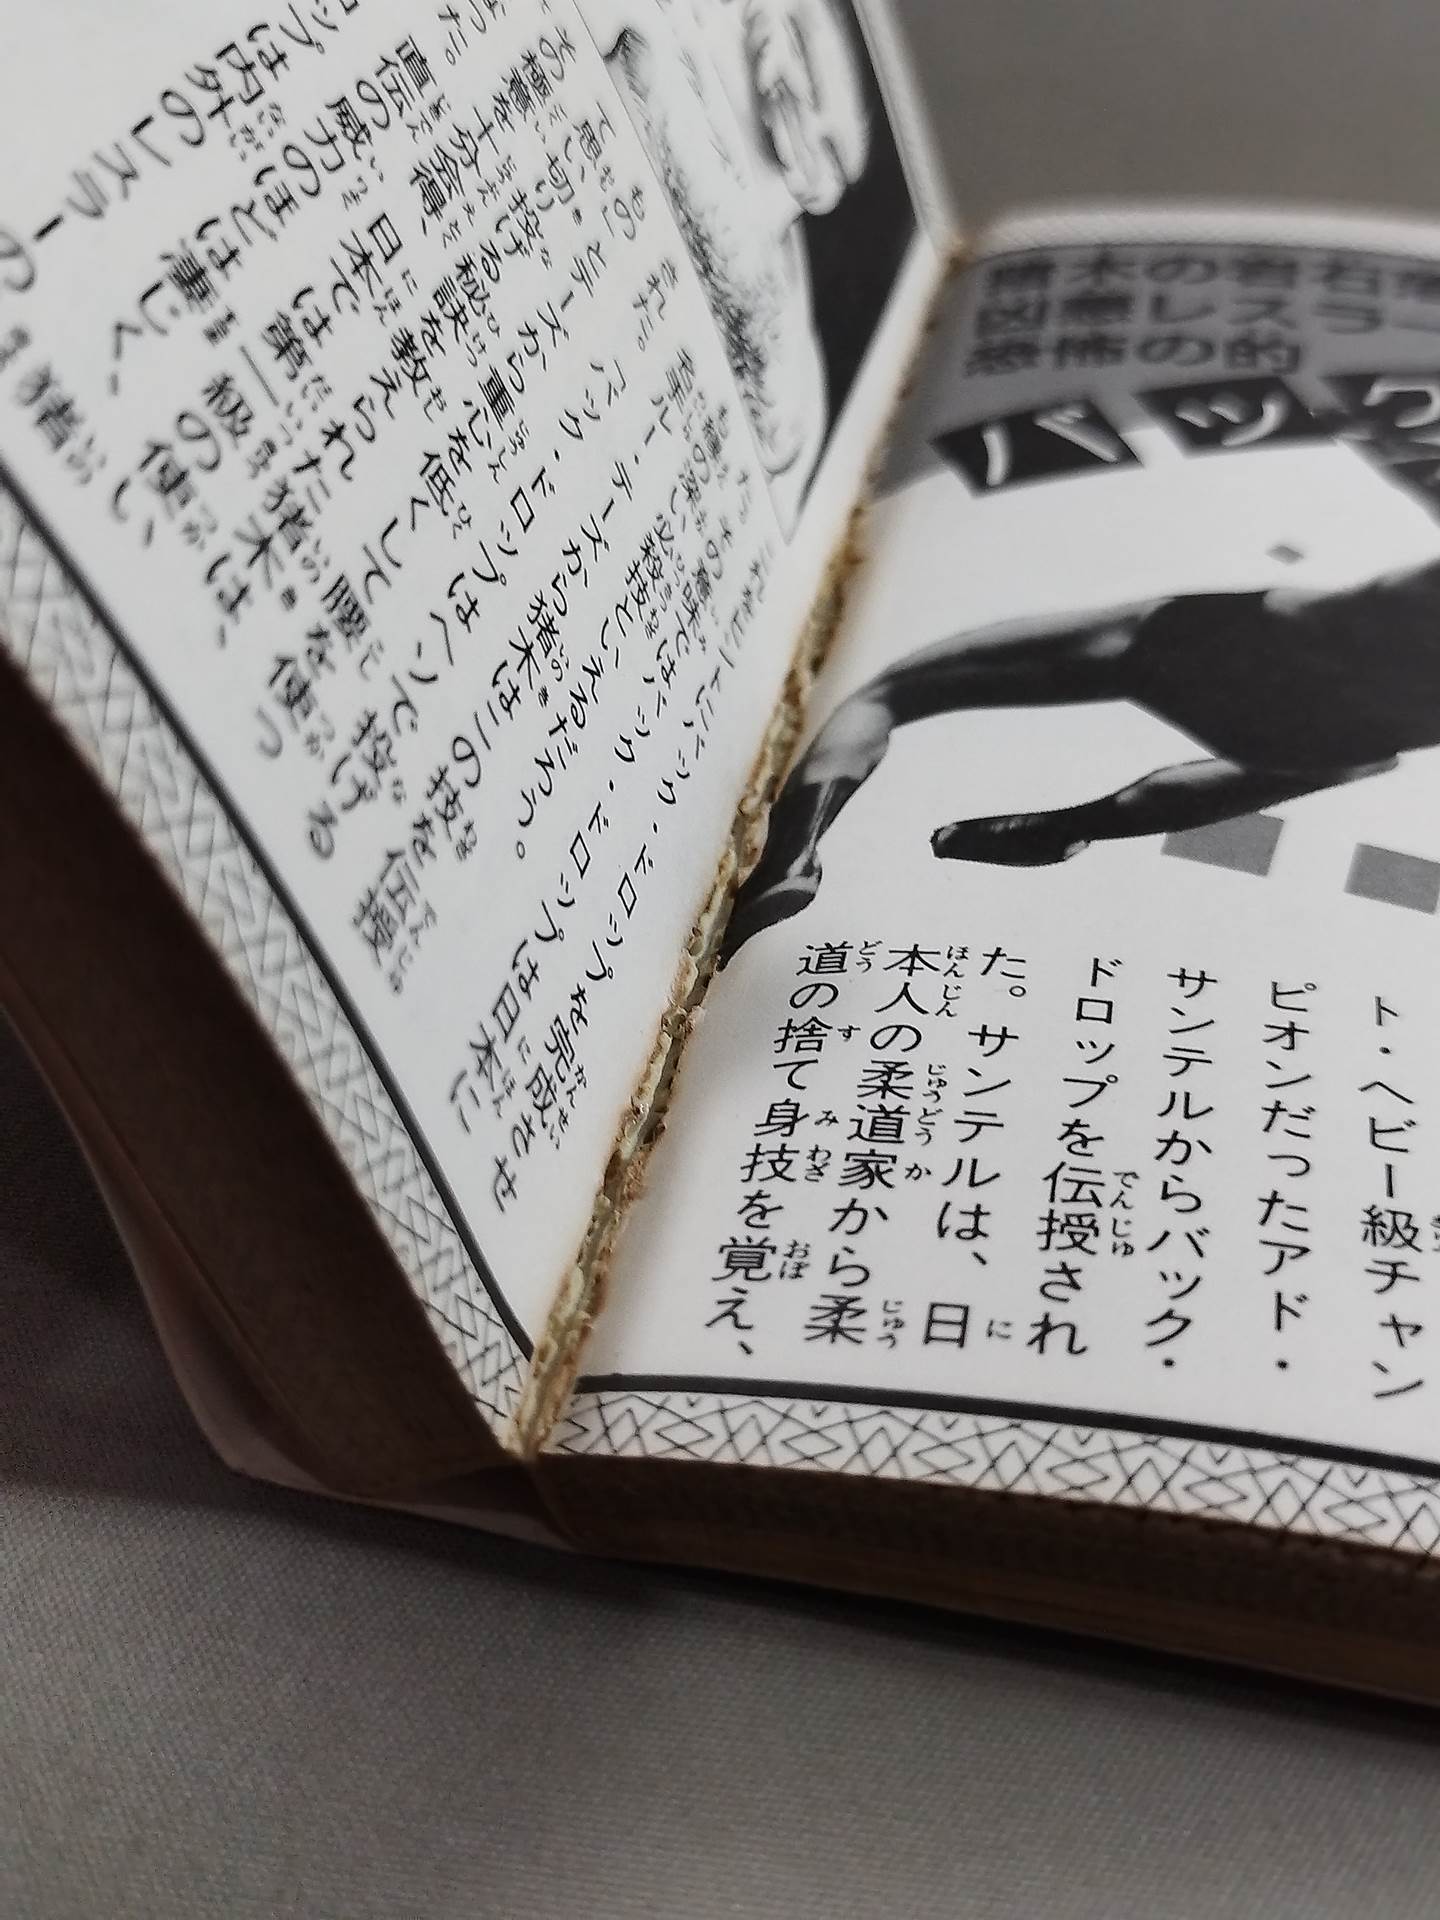 猪木の岩石落
凶悪レスラー
恐怖の的
バック
ト・ヘビー級チャン
ピオンだったアド・
サンテルからバック・
ドロップを伝授され
た。サンテルは、日
本人の柔道家から柔
道の捨て身技を覚え、
これをヒントにバック・ドロップを完成させ
た。その意味ではバック・ドロップは日本に
も縁の深い必殺技といえるだろう。
ルー・テーズから猪木はこの技を伝授
された。「バック・ドロップはヘソで投げる
もの」とテーズから重心を低くして腰を使っ
て思い切り投げる秘訣を教えられた猪木は、
その極意を十分会得、日本では第一級の使い
った。直伝の威力のほどは凄じく、猪木
ロップは内外のレスラーの